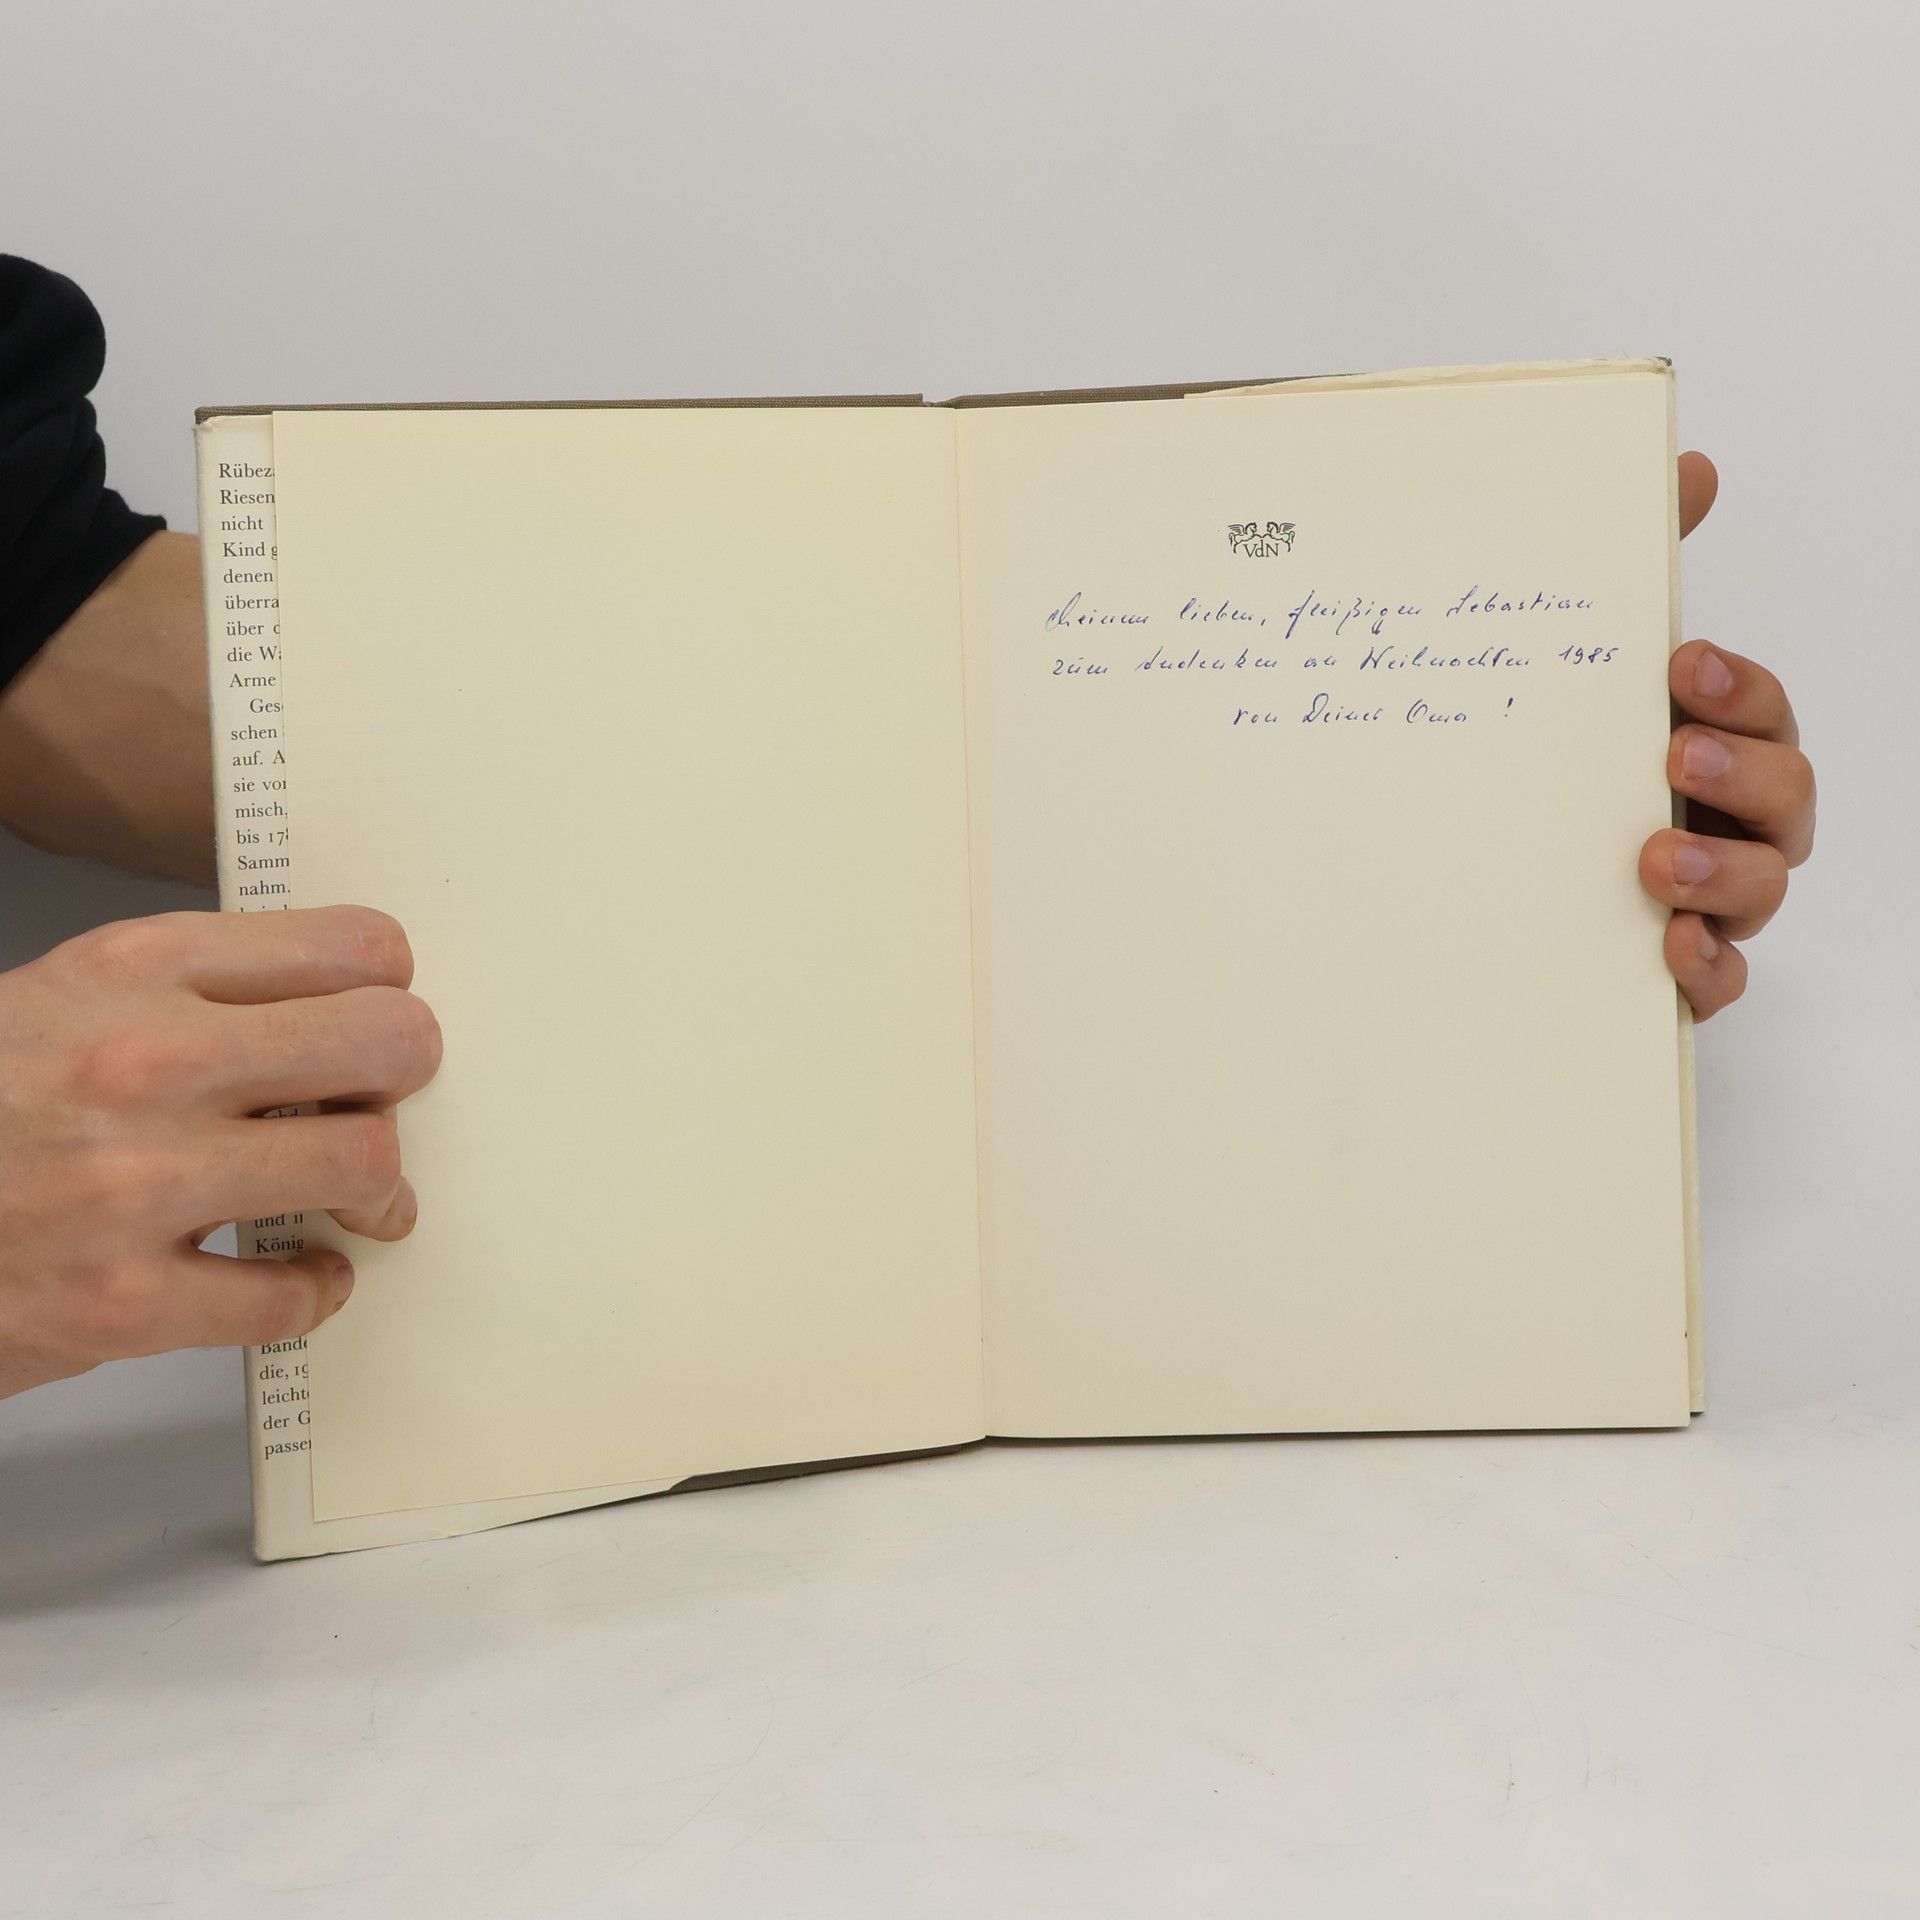 Rübeza
Riesen
nicht
Kind g
denen
überra
über d
die Wa
Arme
Ges
schen
auf. A
sie vor
misch,
bis 178
Samm
nahm.
und i
König
Bande
die, 19
leichte
der G
passen
VdN
Meinem lieben, fleißigen Sebastian
zum Andenken an Weihnachten 1985
von Deiner Oma !